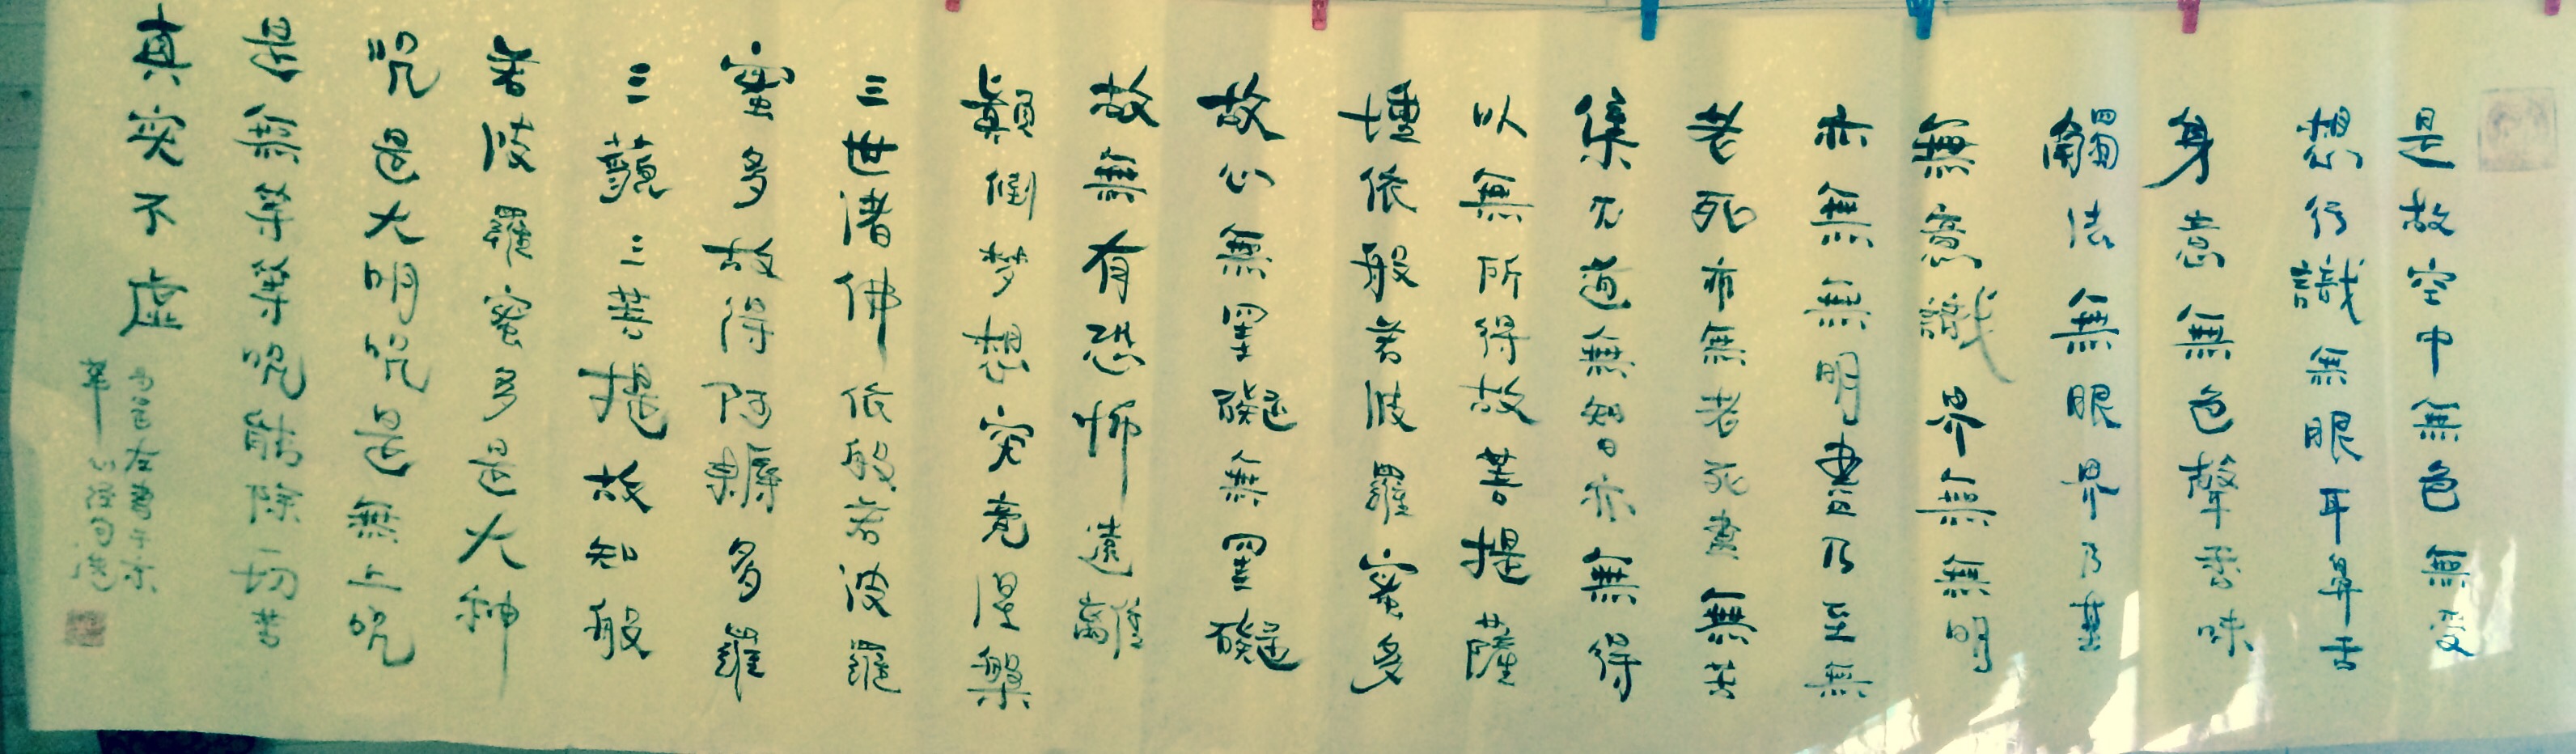 是故空中無色無受
想行識無眼耳鼻舌
身意無色聲香味
觸法無眼界乃
無意識界無無明
亦無無明盡乃至無
老死亦無老死盡無苦
集滅道無智亦無得
以無所得故菩提薩
埵依般若波羅蜜多
故心無罣礙無罣礙
故無有恐怖遠離
顛倒梦想究竟涅槃
三世諸佛依般若波羅
蜜多故得阿耨多羅
三藐三菩提故知般
若波羅蜜多是大神
咒是大明咒是無上咒
是無等等咒能除一切苦
真实不虚